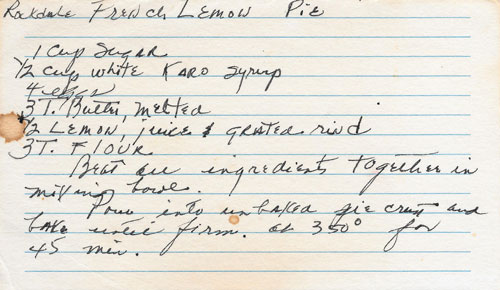 Rockdale French Lemon Pie
1 cup Sugar
1/2 cup white KARO Syrup
4 eggs
3 T. Butter, melted
*1/2 LEMON, juice & grated rind
3 T. FLOUR
Beat all ingredients together in
mixing bowl.
Pour into unbaked pie crust and
bake until firm. at 350° for
45 min.